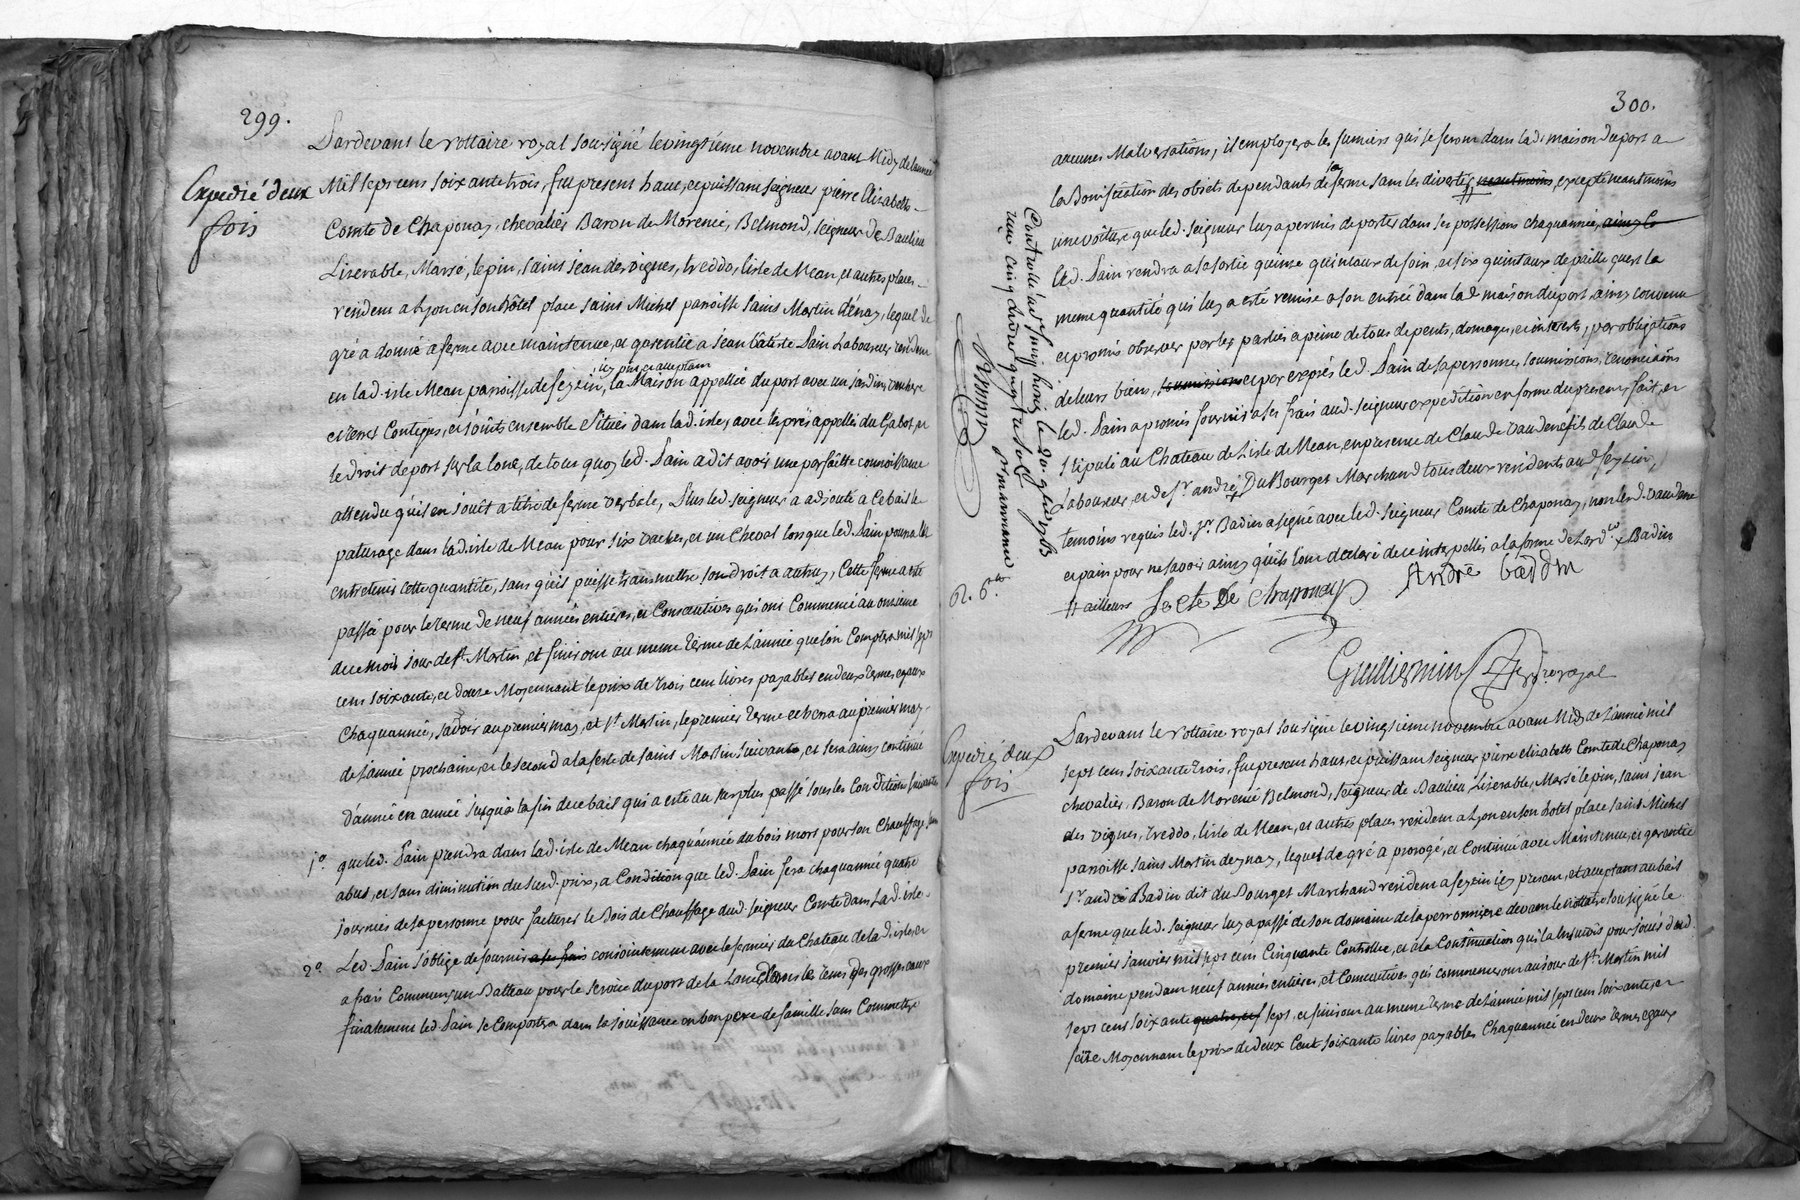 299.
Pardevant le Nottaire royal sousigné le vingtième novembre avant Midy de l'année
Expedié deux
fois
Mil sept cens soixante trois, fut present haut, et puissant seigneur pierre Elizabeth
Comte de Chaponay, chevalier Baron de Morencé, Belmond, seigneur de Baulieu
Liserable, Marsé, lepin, saint jean des vignes, treddo, lisle de Mean, et autres places
resident a Lyon en son hôtel place saint Michel paroisse saint Martin d'énay, lequel de
gré a donné a ferme avec maintenue, et garentie a jean Bâtiste Pain Laboureur resident
icy present et acceptant
en lad. isle Mean paroisse de feyzin, la Maison appellée du port avec un jardin
et terres Contigues, et joints ensemble situés dans lad. isle, avec le pré appellé du Gabot, et
le droit de port sur la lone, de tout quoy led. Pain a dit avoir une parfaitte connoissance
attendu qu'il en jouit a titre de ferme verbale, Plus led. seigneur a adjouté a ce bail le
paturage dans lad. isle de Mean pour six vaches, et un Cheval lorsque led. Pain pourra
entretenir cette quantité, sans qu'il puisse transmettre son droit a autruy, Cette ferme a été
passée pour le terme de neuf années entières, et Consecutives qui ont Commencé au onsieme
du ce mois jour de st. Martin, et finiront au meme terme de l'année que l'on Comptera mil sept
cens soixante, et douze Moyennant le prix de trois cent livres payables en deux termes egaux
Chaquannée, savoir au premier may, et st. Martin, le premier terme echera au premier may
de l'année prochaine, et le second a la feste de saint Martin suivante, et sera ainsy continué
d'année en année jusqu'à la fin de ce bail qui a esté au surplus passé sous les Conditions suivantes
1o. que led. Pain prendra dans lad. isle de Mean chaquannée du bois mort pour son Chauffage sans
abus, et sans diminution du susd. prix, a Condition que led. Pain fera chaquannée quatre
journées de sa personne pour facturer le Bois de Chauffage dud. seigneur Comte dans Lad. isle.
2o. Led. Pain s'oblige de fournir a ses frais conjointement avec le fermier du Chateau de lad. isle, et
a frais Communs un Batteau pour le service du port de la Lone dans les tems des grosses eaux
finalement led. Pain se Comportera dans la jouissance en bon pere de famille sans Commettre
300.
aucunes Malversations, il employera les fumiers qui se feront dans lad. maison du port a
la Bonification des objets dependants de sa ferme sans les divertir neantmoins, excepté neantmoins
une voiture que led. seigneur luy a permis de porter dans ses possessions chaquannée, ainsy
led. Pain rendra a sa sortie quinse quintaux de foin, et six quintaux de paille qu'est la
meme quantité qui luy a esté remise a son entrée dans lad. maison du port ainsy convenu
et promis observer par les parties a peine de tous depents, domages, et interets, par obligations
de leurs biens, soumissions et par exprés led. Pain de sa personne, soumissions, renonciaôns
led. Pain a promis fournir a ses frais aud. seigneur expédition en forme du present, fait, et
stipulé au Chateau de Lisle de Mean, en presence de Claude Vaudene fils de Claude
Laboureur, et de sr. andré Du Bourget Marchand tous deux residents aud. feyzin,
temoins requis led. sr. Badin a signé avec led. seigneur Comte de Chaponay, non led. Vaudene
et pain pour ne savoir ainsy qu'ils l'ont declaré de ce interpellés a la forme de Lord.ce x Badin
# ailleurs Le Cte De Chaponay André badin
Guilliermin Nre. royal
Controllé a St. Simphorien le 20. 9bre 1763
reçu cinq livres
R. 6.
Expedié deux
fois
Pardevant le Nottaire royal sousigné le vingtieme novembre avant Midy de l'année mil
sept cens soixante trois, fut present haut, et puissant seigneur pierre elizabeth Comte de Chaponay
chevalier, Baron de Morencé Belmond, seigneur de Baulieu, Liserable, Marsé lepin, saint jean
des vignes, treddo, lisle de Mean, et autres places resident a Lyon en son hotel place saint Michel
paroisse saint Martin deynay, lequel de gré a prorogé, et Continué avec Maintenue, et garentie
sr. andré Badin dit du Bourget Marchand resident a feyzin icy present, et acceptant au bail
a ferme que led. seigneur luy a passé de son domaine de la perronniere devant le Nottaire sousigné le
premier janvier mil sept cens Cinquante Controllé, et a la Continuation qu'il a pour jouir dud.
domaine pendant neuf années entieres, et Consecutives qui commenceront au jour de st. Martin mil
sept cens soixante quatre, et sept, et finiront au meme terme de l'année mil sept cens soixante, et
seize Moyennant le prix de deux Cent soixante livres payables Chaquannée en deux termes egaux